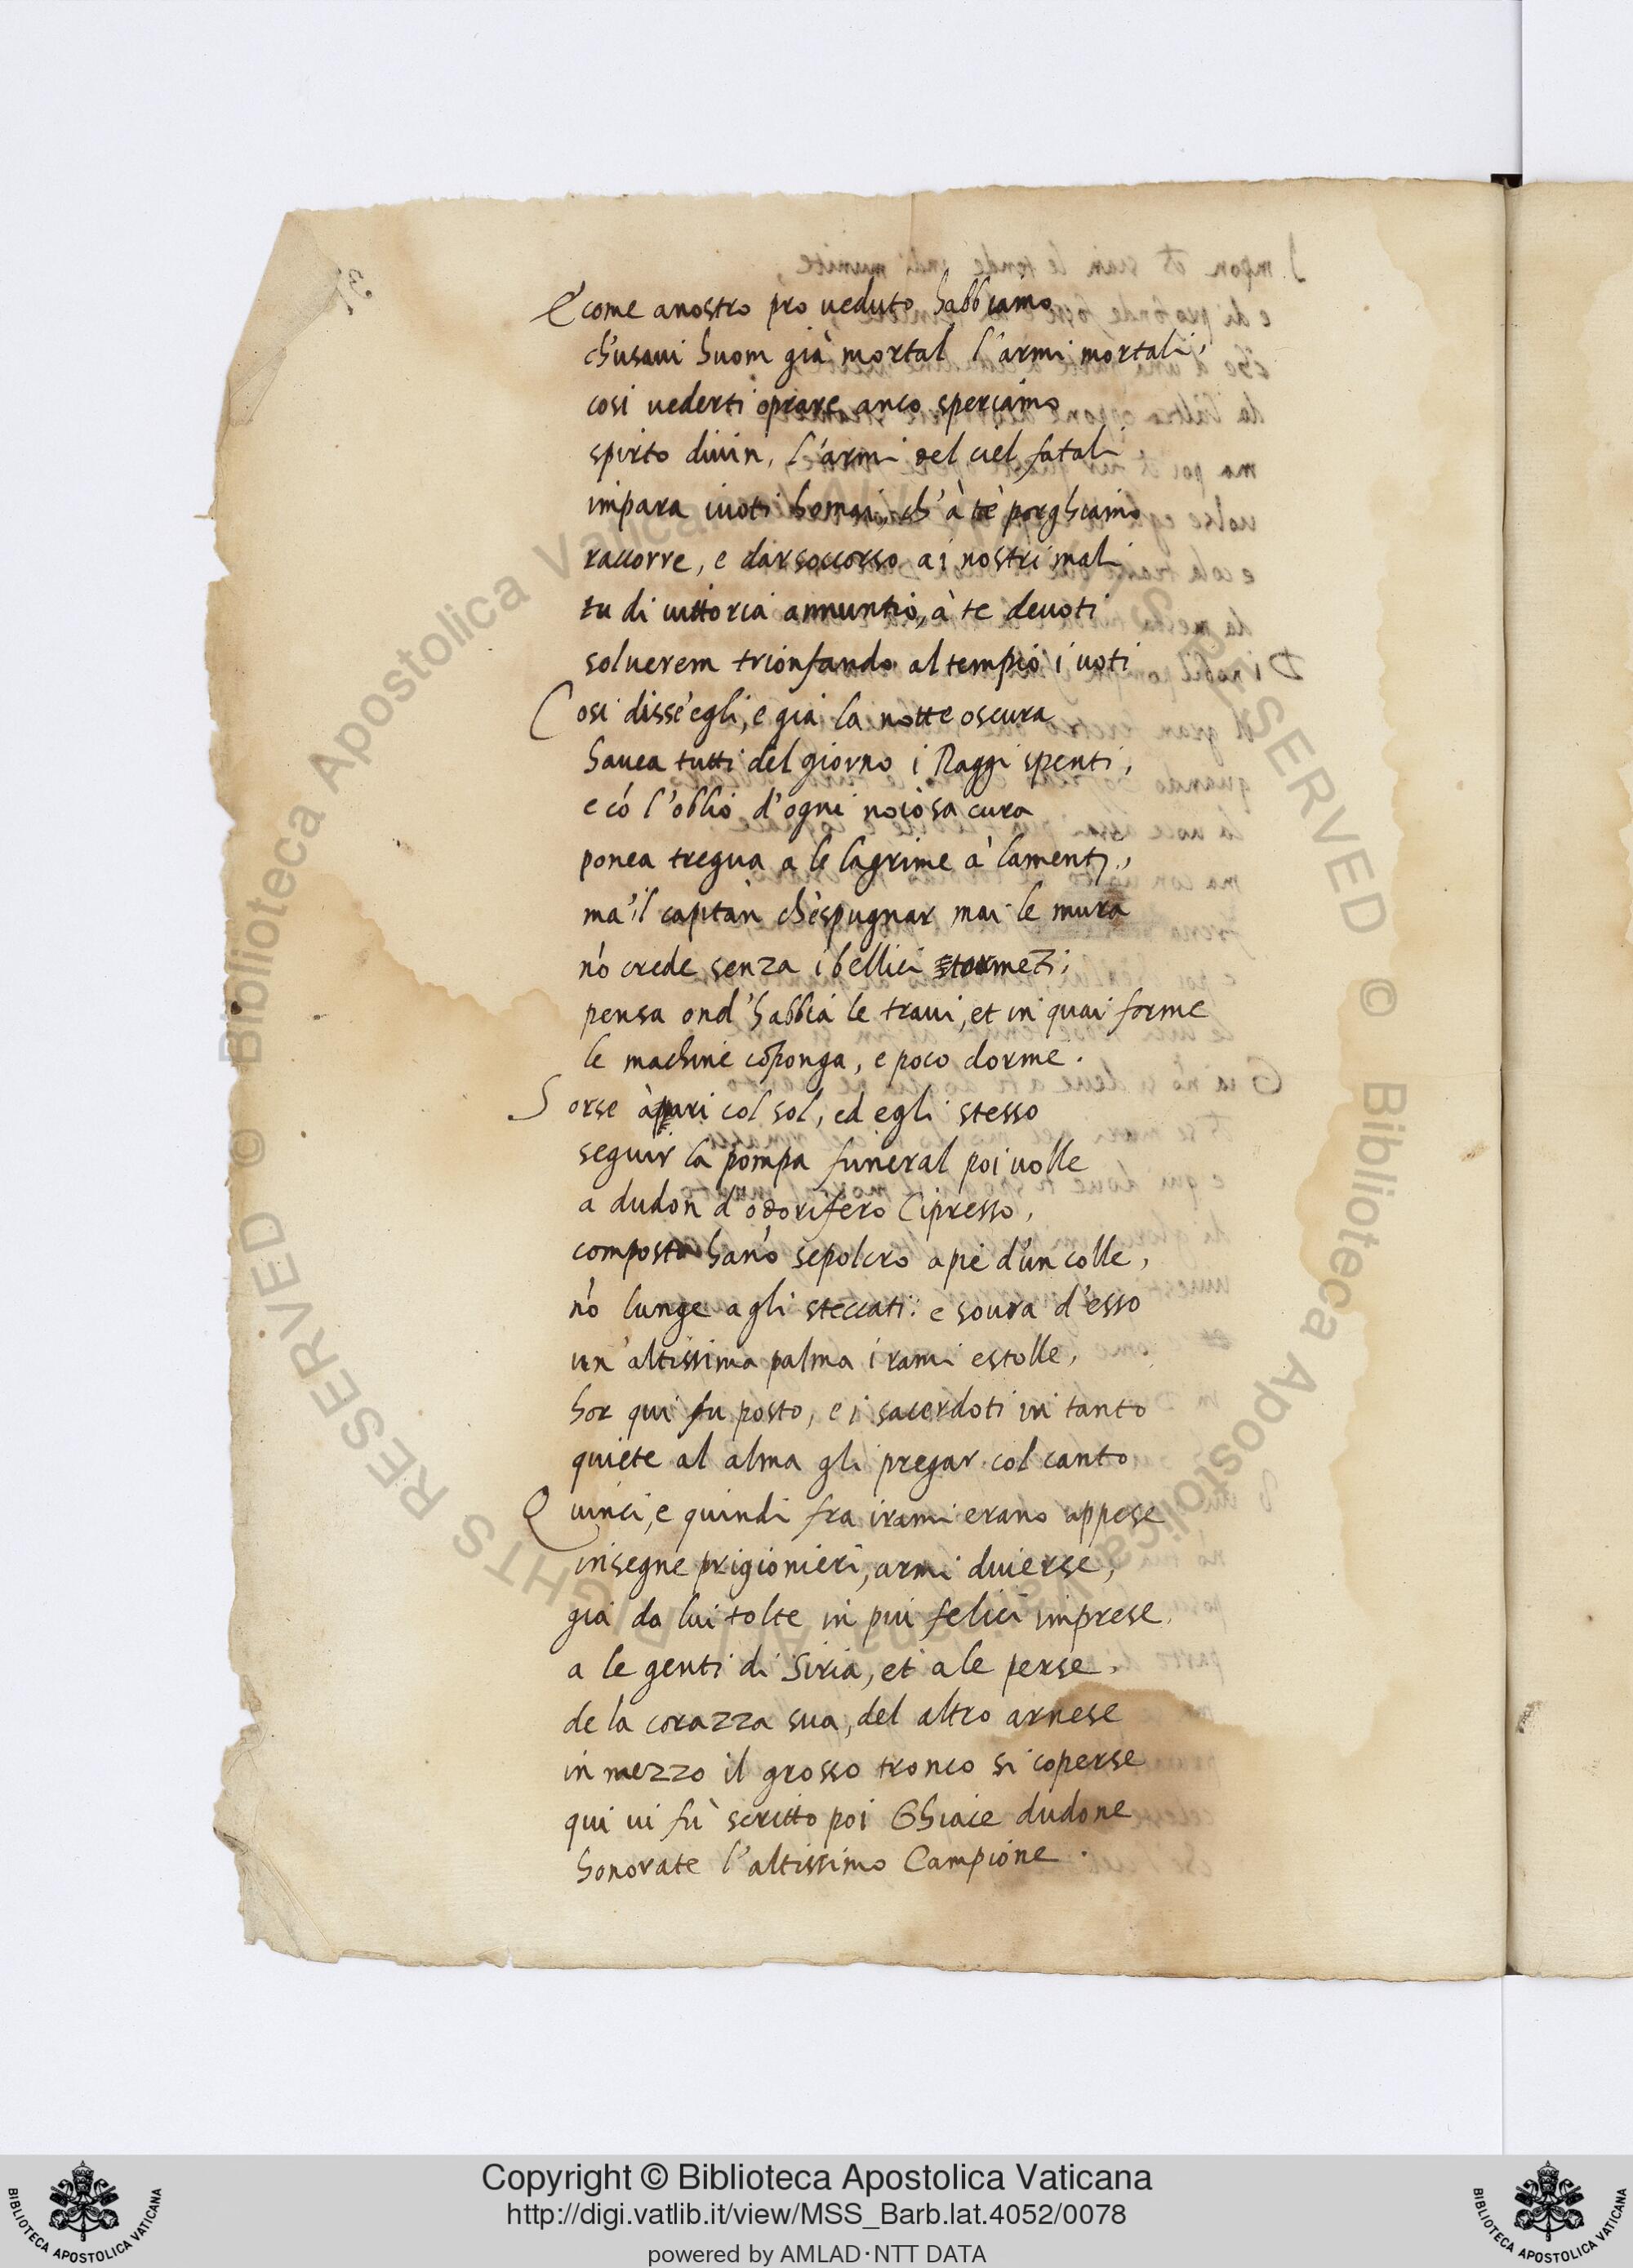 E come a nostro pro ueduto habbiamo
ch'usaui huom già mortal l'armi mortali,
cosi uederti oprare anco speriamo
spirto diuin, l'armi del ciel fatali
impara i uoti homai, ch'à tè porghiamo
raccorre, e dar soccorso ai nostri mali
tu di uittoria annuntio, à te deuoti
soluerem trionfando al tempio i uoti
Cosi disse egli, e gia la notte oscura
hauea tutti del giorno i Raggi spenti,
e cō l'oblio d'ogni noiosa cura
ponea tregua a le lagrime à lamenti,
ma'il capitan ch'espugnar mai le mura
nō crede senza i bellici stormēti,
pensa ond'habbia le traui, et in quai forme
le machine cōponga, e poco dorme.
Sorse à pari col sol, ed egli stesso
seguir la pompa funeral poi uolle
a dudon d'odorifero Cipresso,
composto hanō sepolcro a piè d'un colle,
nō lunge agli steccati: e soura d'esso
un'altissima palma i rami estolle,
hor qui fu posto, e i sacerdoti in tanto
quiete al alma gli pregar col canto
Quinci, e quindi fra i rami erano appese
insegne prigionieri, armi diuerse,
gia da lui tolte in piu felici imprese
a le genti di Siria, et a le perse.
de la corazza sua, del altro arnese
in mezzo il grosso tronco si coperse
qui ui fù scritto poi Ghiace dudone
honorate l'altissimo Campione.
Copyright © Biblioteca Apostolica Vaticana
http://digi.vatlib.it/view/MSS_Barb.lat.4052/0078
powered by AMLAD·NTT DATA
BIBLIOTECA APOSTOLICA VATICANA
BIBLIOTECA APOSTOLICA VATICANA